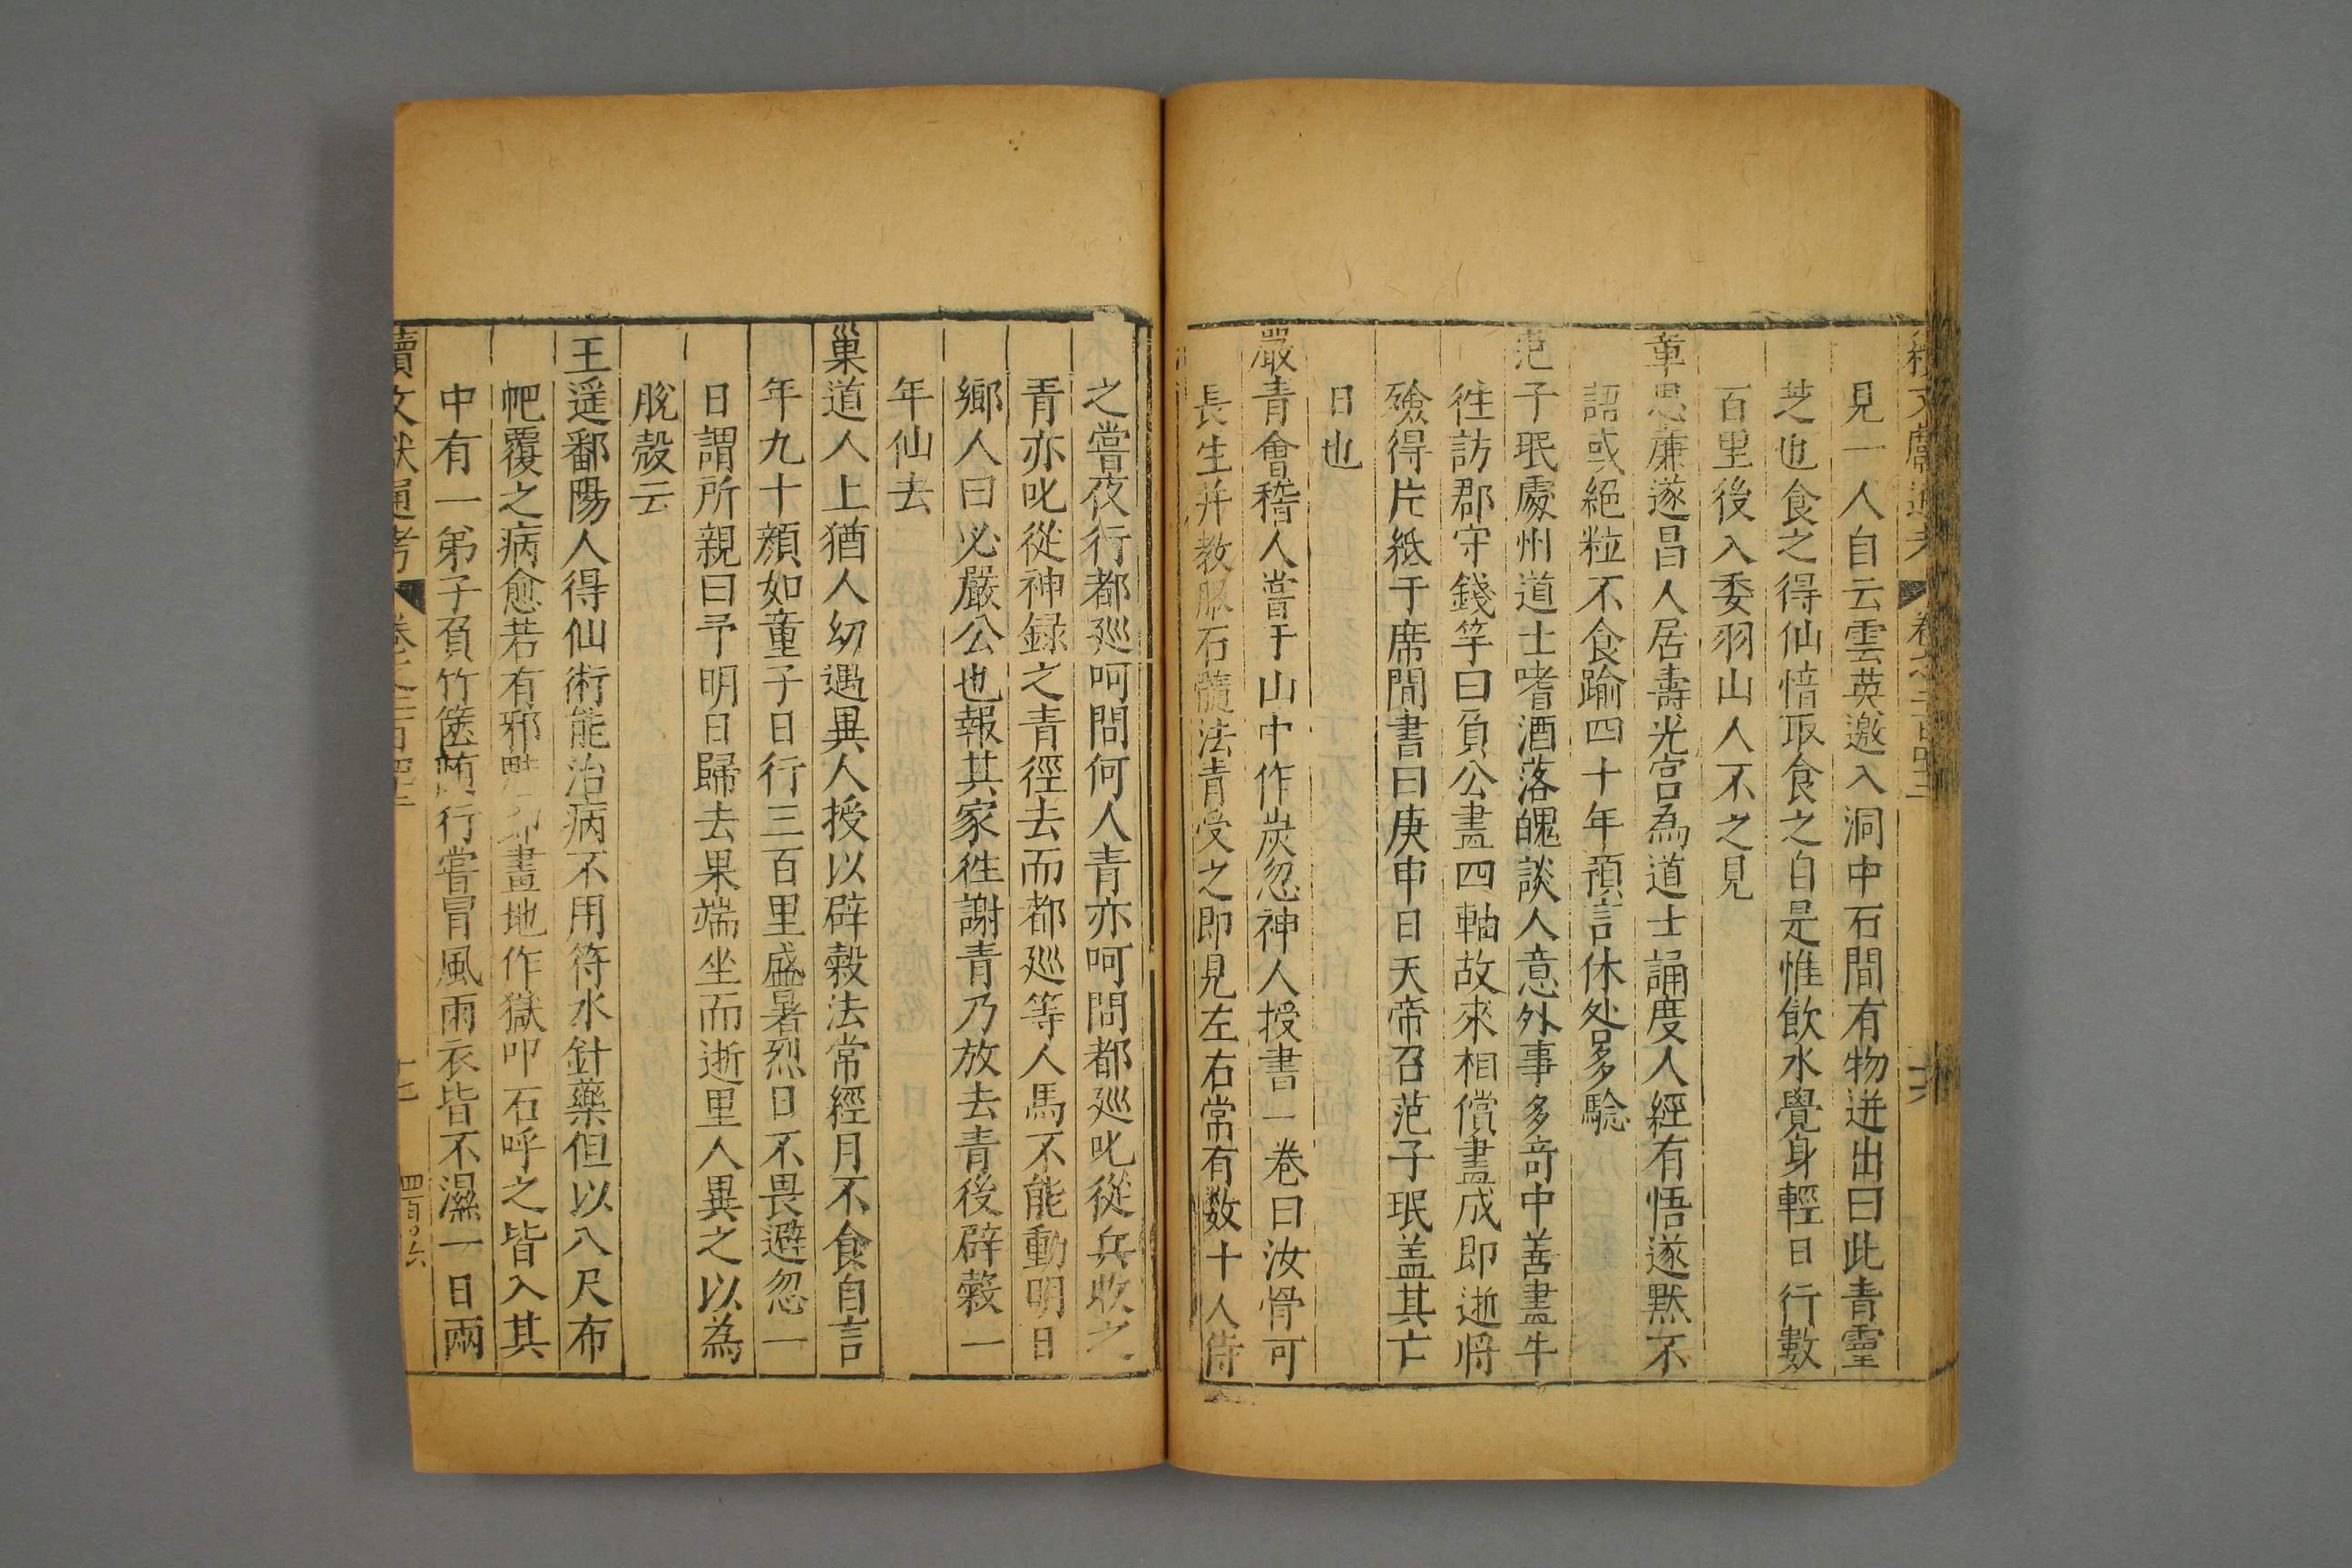 續文獻通考 卷之二百四十三 十六
見一人自云雲英邀入洞中石間有物迸出曰此青靈
芝也食之得仙愔取食之自是惟飲水覺身輕日行數
百里後入委羽山人不之見
章思廉遂昌人居壽光宮為道士誦度人經有悟遂黙不
語或絕粒不食踰四十年預言休咎多騐
范子珉處州道士嗜酒落魄談人意外事多奇中善畫牛
徃訪郡守錢竽曰負公畫四軸故來相償畫成即逝将
殮得片紙于席間書曰庚申日天帝召范子珉盖其亡
日也
嚴青會稽人嘗于山中作炭忽神人授書一卷曰汝骨可
長生并教服石髓法青受之即見左右常有数十人侍
之嘗夜行都廵呵問何人青亦呵問都廵叱從兵收之
青亦叱從神録之青徑去而都廵等人馬不能動明日
鄉人曰必嚴公也報其家徃謝青乃放去青後辟穀一
年仙去
巢道人上猶人幼遇異人授以辟穀法常經月不食自言
年九十顔如童子日行三百里盛暑烈日不畏避忽一
日謂所親曰予明日歸去果端坐而逝里人異之以為
脫殼云
王遥鄱陽人得仙術能治病不用符水針藥但以八尺布
帊覆之病愈若有邪畫地作獄叩石呼之皆入其
中有一弟子負竹篋随行嘗冒風雨衣皆不濕一日兩
續文獻通考 卷之二百四十三 十七 四百〇六